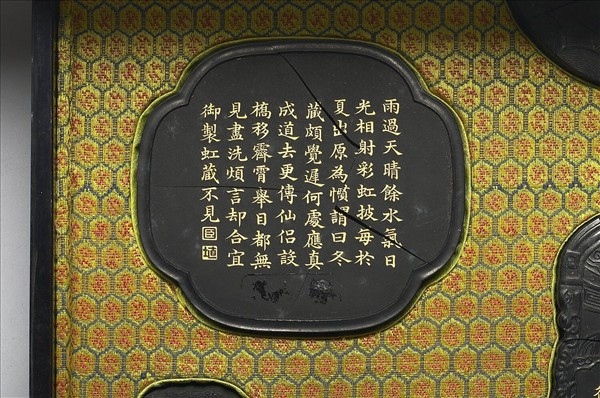 雨過天晴餘水氣日
光相射彩虹披每於
夏出原為慣謂曰冬
藏頗覺遲何處應真
成道去更傳仙侶設
橋移霽霄舉目都無
見盡洗煩言却合宜
御製虹藏不見